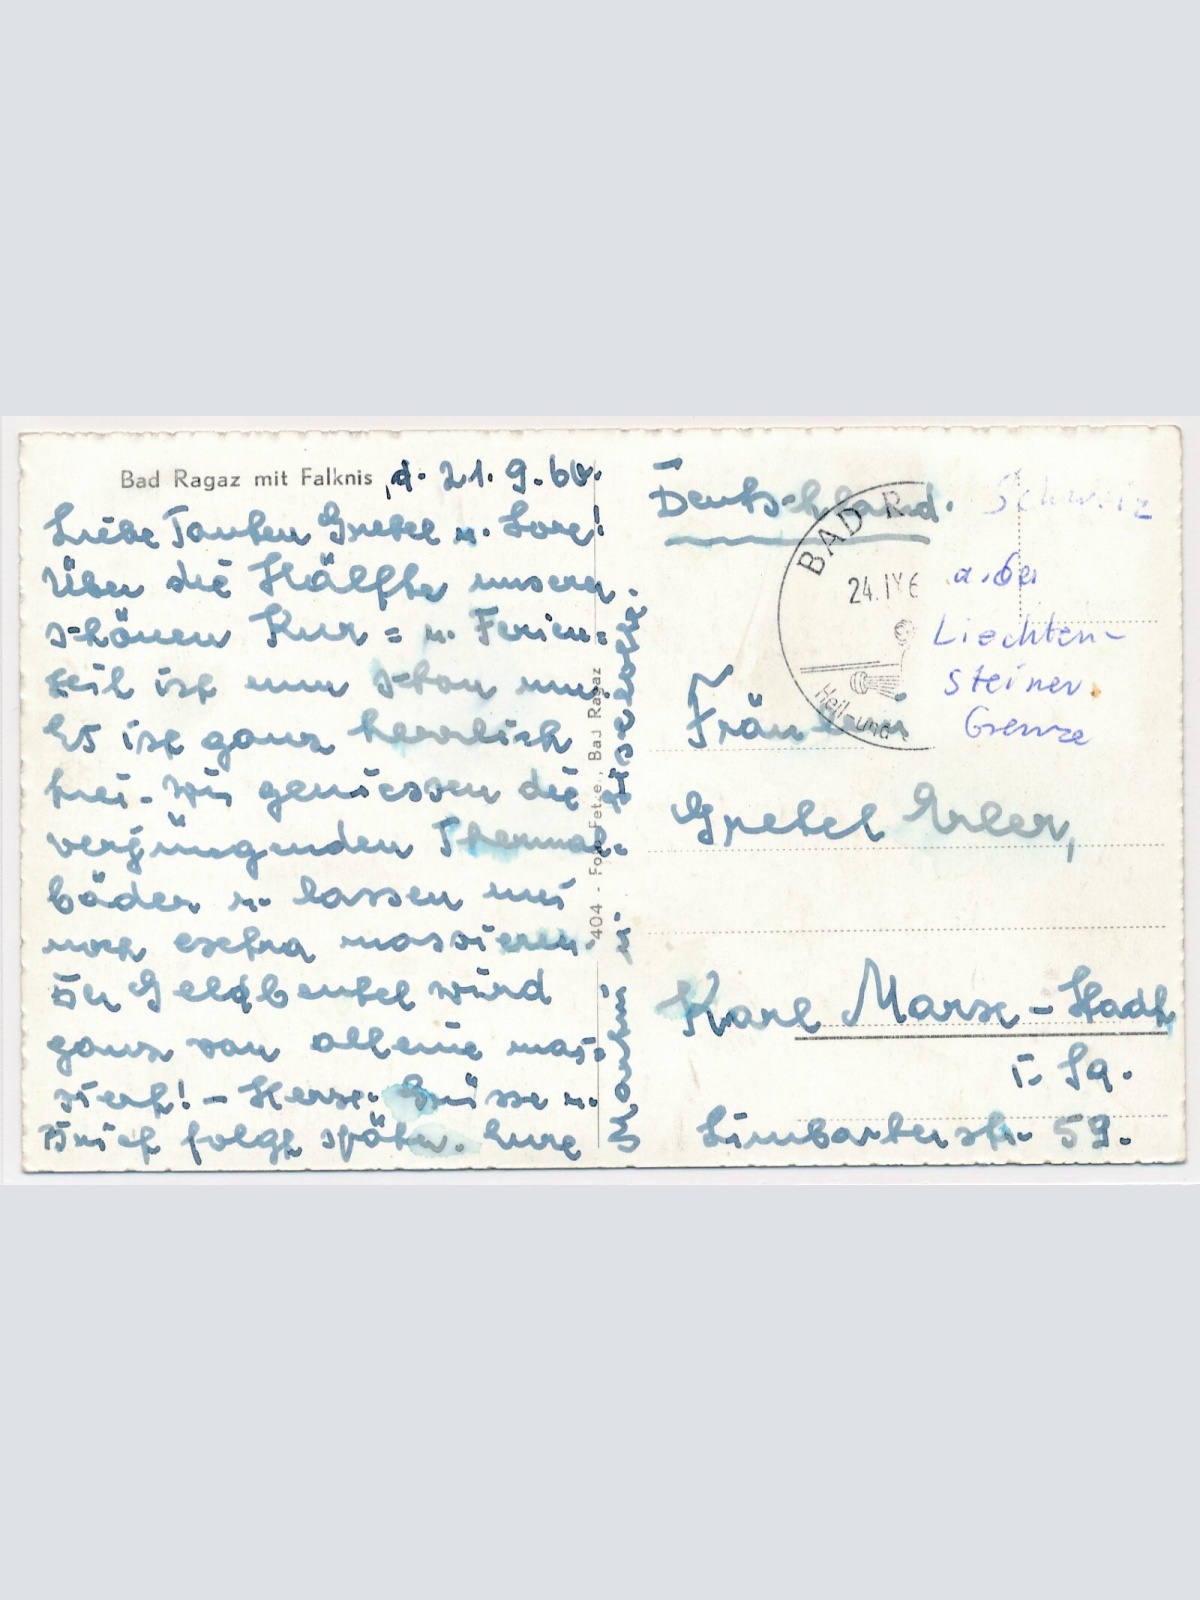 Bad Ragaz mit Falknis, d. 21.9.60.
Liebe Tanten Gretel u. Lore!
Über die Hälfte unserer
schönen Kur= u. Ferien=
zeit ist nun schon um.
Es ist ganz herrlich
hei. Wir geniessen die
verjüngenden Thermal=
bäder u. lassen uns
noch extra massieren.
Der Geldbeutel wird
ganz von alleine mas=
siert! - Herzl. Grüsse u.
Brief folgt später. Eure
Martin u. Liselotte
404 - Foto Fetzer, Bad Ragaz
Deutschland.
Schweiz
a. der
Liechten-
steiner
Grenze
BAD R
24.IX 6
Heil- und
Fräulein
Gretel Erler,
Karl Marx-Stadt
i. Sa.
Limbacherstr. 59.